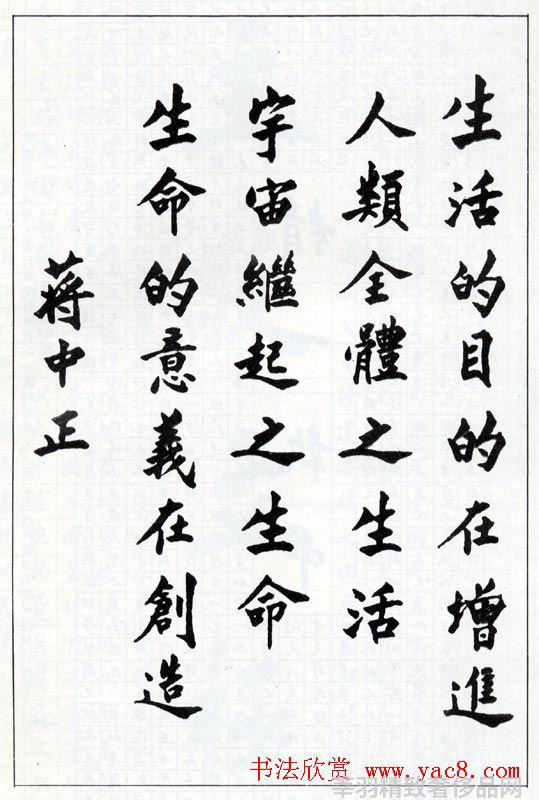 生活的目的在增進
人類全體之生活
宇宙繼起之生命
生命的意義在創造
蔣中正
书法欣赏 www.yac8.com
羽精致奢侈品网